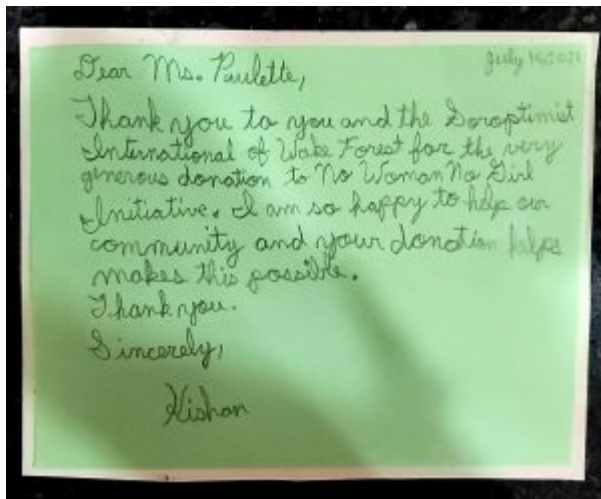 July
Dear Ms. Paulette,
Thank you to you and the Soroptimist
International of Wake Forest for the very
generous donation to No Woman No Girl
Initiative. I am so happy to help our
community and your donation helps
makes this possible.
Thank you.
Sincerely,
Kishan